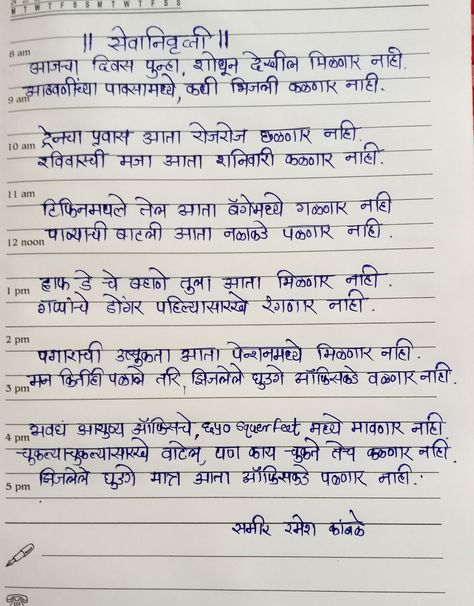 M T W T F S S M T W T F S S
|| सेवानिवृत्ती ||
8 am
आजचा दिवस पुन्हा, शोधून देखील मिळणार नाही.
आठवणींच्या पावसामध्ये, कधी भिजली कळणार नाही.
9 am
10 am
ट्रेनचा प्रवास आता रोजरोज छळणार नाही.
रविवारची मजा आता शनिवारी कळणार नाही.
11 am
टिफिनमधले तेल आता बॅगेमध्ये गळणार नाही
पाण्याची बाटली आता नळाकडे पळणार नाही.
12 noon
हाफ डे चे बहाणे तुला आता मिळणार नाही.
1 pm
गप्पांचे डोंगर पहिल्यासारखे रंगणार नाही.
2 pm
पगाराची उत्सुकता आता पेन्शनमध्ये मिळणार नाही.
मन कितीही पळाले तरि, झिजलेले घुडगे ऑफिसकडे वळणार नाही.
3 pm
अवघं आयुष्य ऑफिसचे, ६५० squerfeet, मध्ये मावणार नाही
4 pm
चुकल्याचुकल्यासारखे वाटेल, पण काय चुकते तेच कळणार नाही.
झिजलेले घुडगे मात्र आता ऑफिसकडे पळणार नाही.
5 pm
समीर रमेश कांबळे